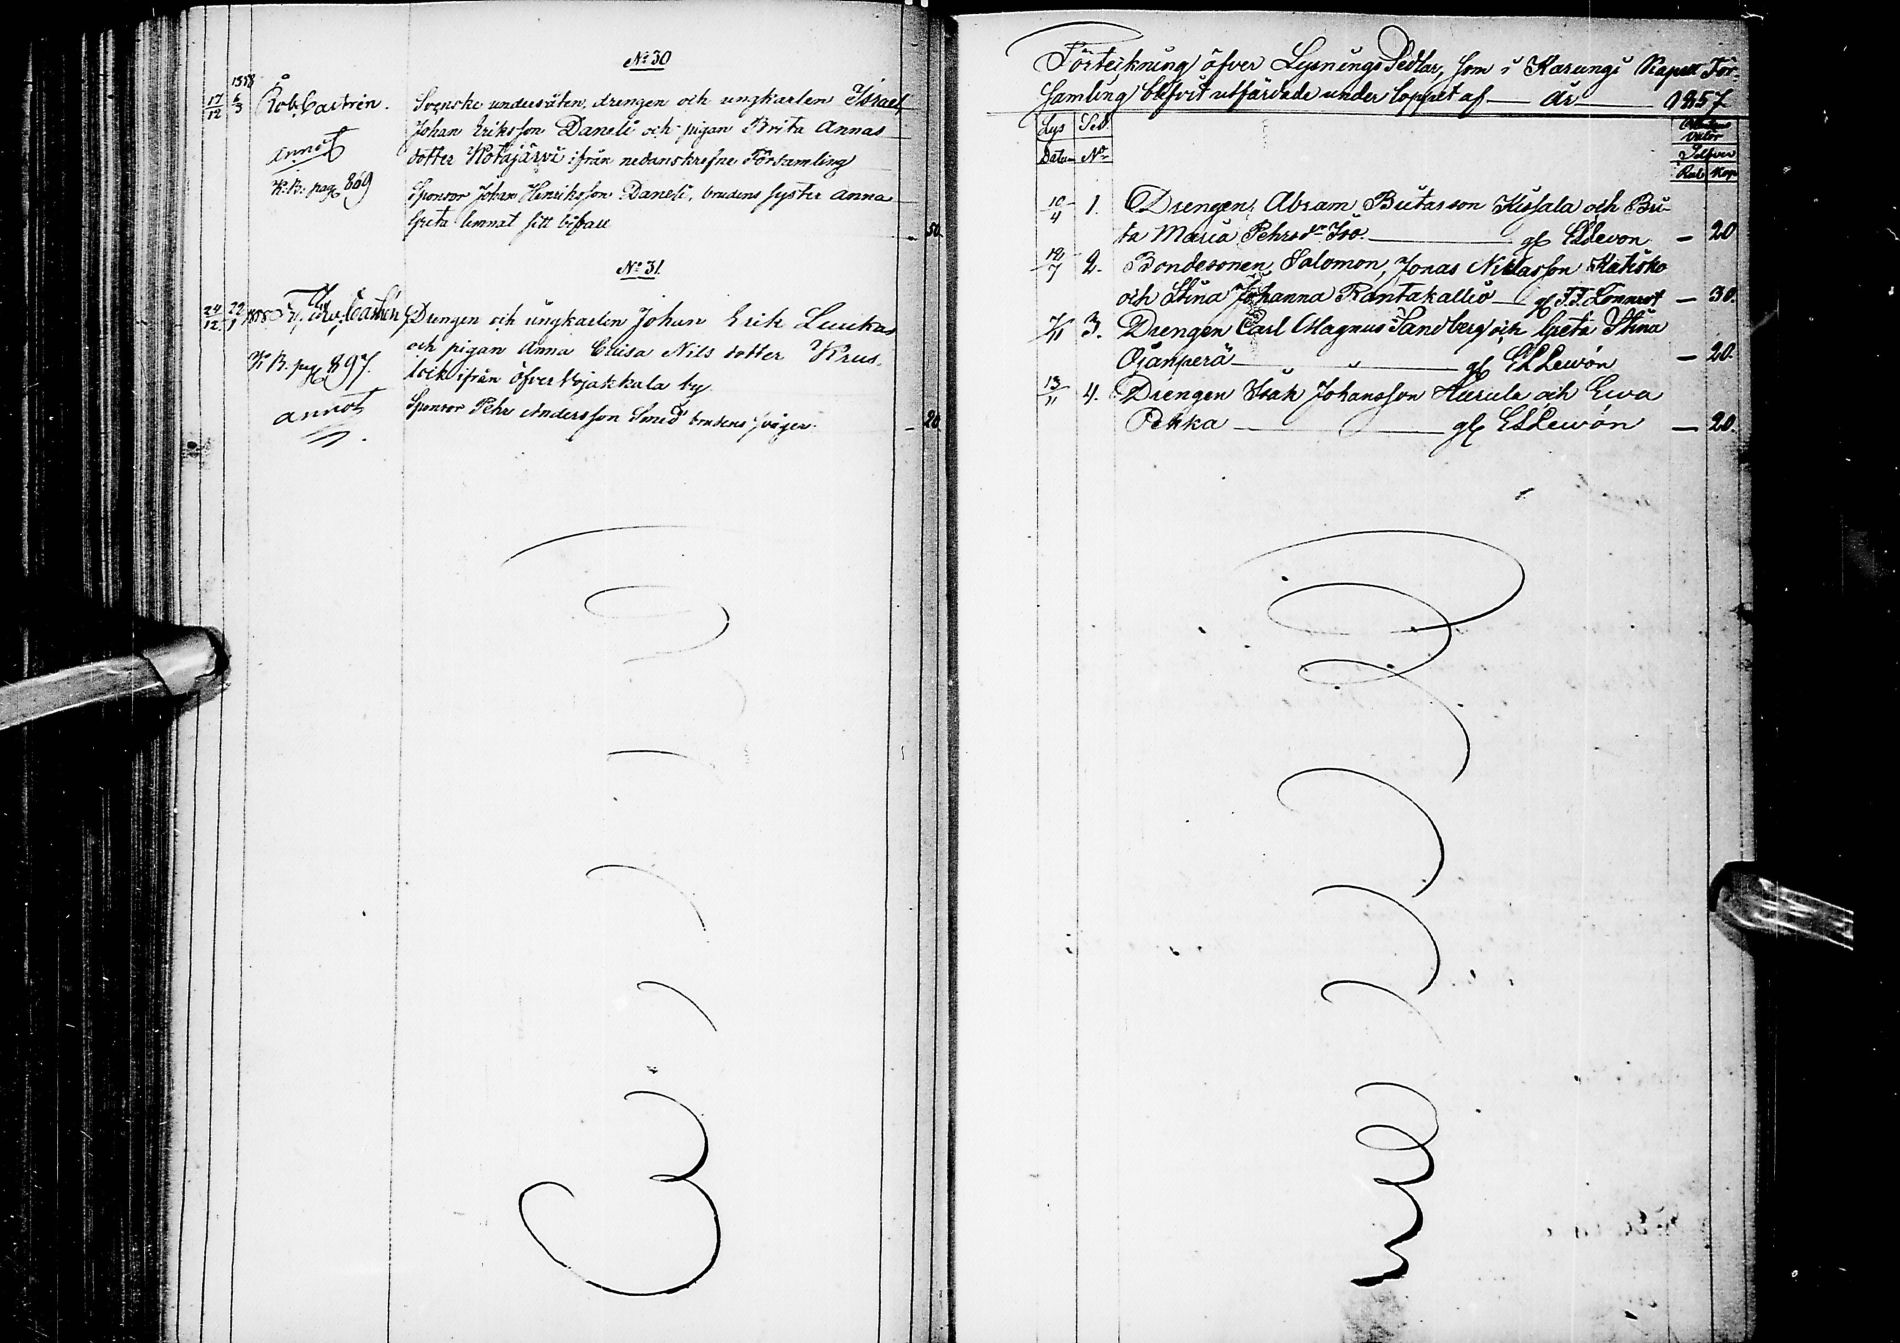 No 30
1858
17/12 6/3 Rob. Castrén. Svenske undersåten, drengen och ungkarlen Israel
Johan Eriksson Daneli och pigan Brita Annas
annot dotter Kotajärvi ifrån nedanskrefne Församling
K.B. pag 809 Sponsor Johan Henriksson Daneli, brudens syster Anna
Greta lemnat sitt bifall — 50.
No 31.
24/12 22/1 1858 Castrén Drengen och ungkarlen Johan Erik Luukas
och pigan Anna Caisa Nils dotter Krus
K B. pag 897. ifrån öfver Wojakkala by.
annot Sponsor Pehr Andersson Smed brudens svåger. — 20.
Förteckning öfver Lysnings Sedlar, som i Karungi Kapell För-
samling blifvit utfärdade under loppet af — År — 1857
Lys Sed.
Datum No
Silfver
Rub Kop
10/4 1. Drengen Abram Kissala och Bri-
ta Maria Pehrsdr Iso. — gf ELLevon — 20
19/7 2. Bondesonen Salomon Jonas Niklasson Katisko
och Stina Johanna Rantakallio — gf F.F. Lönnrot — 30.
7/11 3. Drengen Carl Magnus Sandberg och Greta Stina
Ojanperä — " — gf ELLewón — 20.
13/11 4. Drengen Isak Johansson och Ewa
Pekka — " — gf ELLewón — 20.